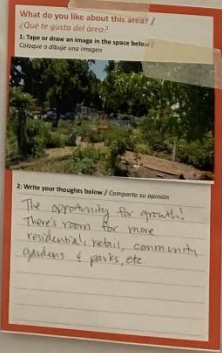 What do you like about this area? /
¿Qué te gusta del área?
1: Tape or draw an image in the space below /
Coloque o dibuje una imagen
2: Write your thoughts below / Comparta su opinion
The opportunity for growth!
There's room for more
residential, retail, community
gardens & parks, etc